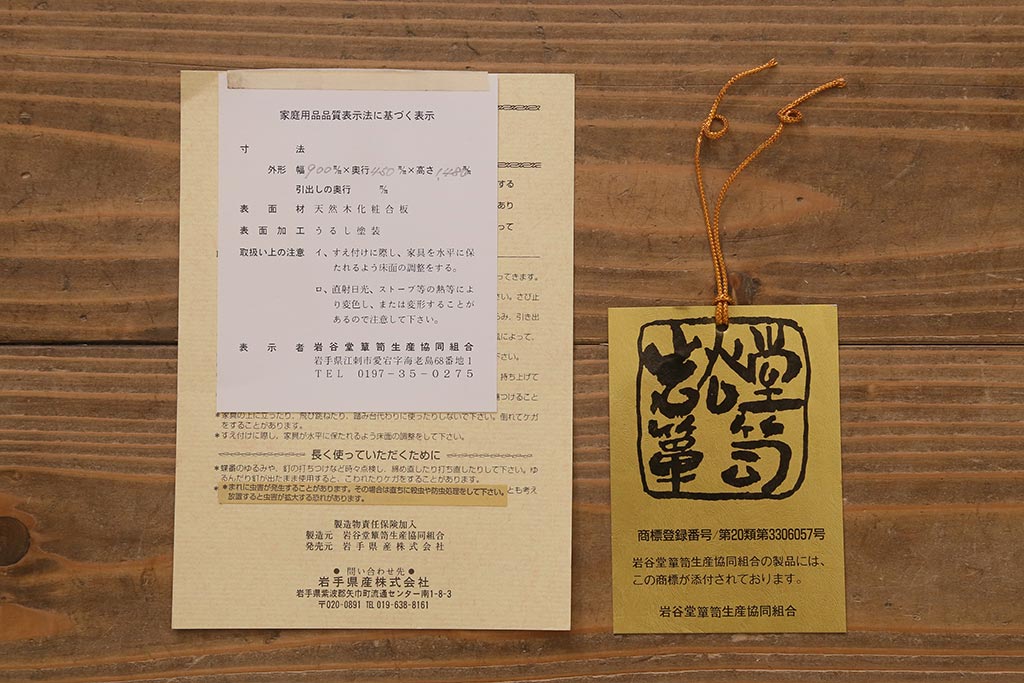 家庭用品品質表示法に基づく表示
寸法
外形 幅900㎜×奥行450㎜×高さ1,480㎜
引出しの奥行 ㎜
表面材 天然木化粧合板
表面加工 うるし塗装
取扱い上の注意 イ、すえ付けに際し、家具を水平に保
たれるよう床面の調整をする。
ロ、直射日光、ストーブ等の熱等によ
り変色し、または変形することが
あるので注意して下さい。
表示者 岩谷堂簞笥生産協同組合
岩手県江刺市愛宕字海老島68番地1
TEL 0197-35-0275
する
あり
って
ってきます。
さい。さび止
み、引き出
によって、
下さい。
持ち上げて
つけること
*家具の上に立ったり、飛び跳ねたり、踏み台代わりに使ったりしないで下さい。倒れてケガ
をすることがあります。
*すえ付けに際し、家具が水平に保たれるよう床面の調整をして下さい。
長く使っていただくために
*蝶番のゆるみや、釘の打ちつけなど時々点検し、締め直したり打ち直したりして下さい。ゆ
るんだり釘が出たまま使用すると、こわれたりケガをすることがあります。
*まれに虫害が発生することがあります。その場合は直ちに殺虫や防虫処理をして下さい。
とも考え
放置すると虫害が拡大する恐れがあります。
製造物責任保険加入
製造元 岩谷堂簞笥生産協同組合
発売元 岩手県産株式会社
●問い合わせ先●
岩手県産株式会社
岩手県紫波郡矢巾町流通センター南1-8-3
〒020-0891 TEL 019-638-8161
岩谷堂簞笥
商標登録番号/第20類第3306057号
岩谷堂簞笥生産協同組合の製品には、
この商標が添付されております。
岩谷堂簞笥生産協同組合